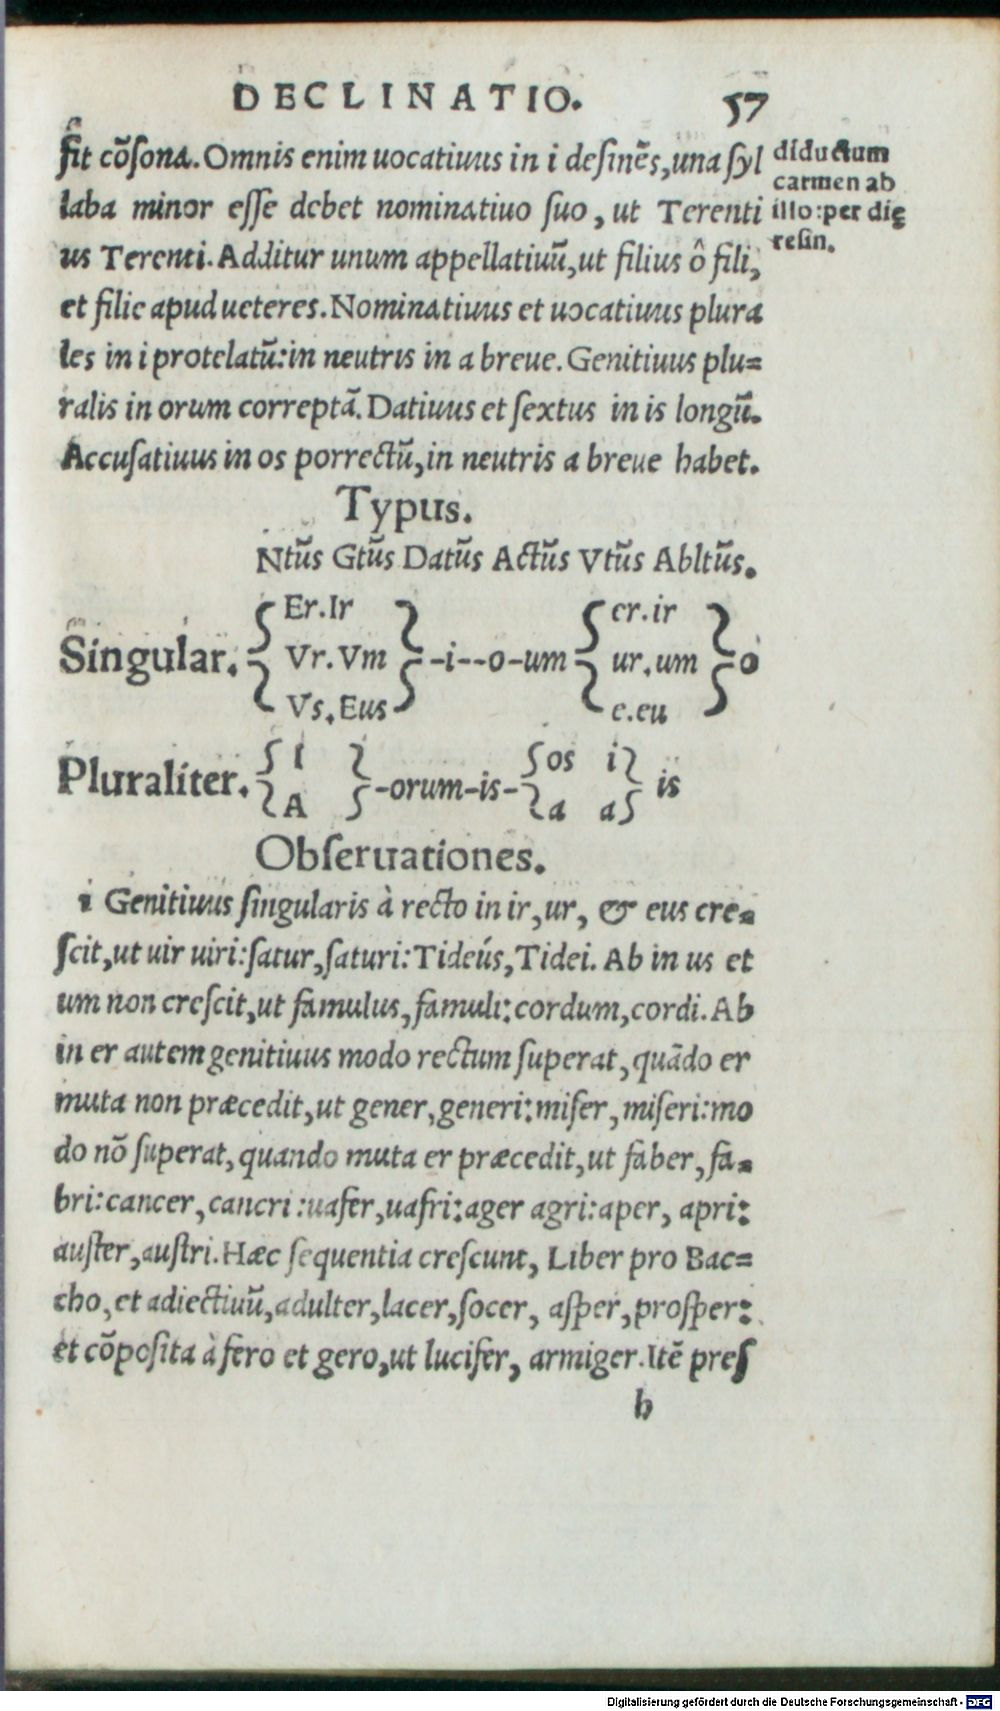 DECLINATIO. 57
fit cõſona. Omnis enim uocatiuus in i deſinẽs, una ſyl
laba minor eſſe debet nominatiuo ſuo, ut Terenti
us Terenti. Additur unum appellatiuũ, ut filius ô fili,
et filie apud ueteres. Nominatiuus et uocatiuus plura
les in i protelatũ: in neutris in a breue. Genitiuus plu=
ralis in orum correptã. Datiuus et ſextus in is longũ.
Accuſatiuus in os porrectũ, in neutris a breue habet.
diductum
carmen ab
illo: per dię
reſin.
Typus.
Ntũs Gtũs Datũs Actũs Vtũs Abltũs.
Er. Ir er. ir
Singular. { Vr. Vm } -i--o-um { ur. um } o
Vs. Eus e. eu
Pluraliter. { I } -orum-is- { os i } is
A a a
Obſeruationes.
1 Genitiuus ſingularis à recto in ir, ur, & eus cre=
ſcit, ut uir uiri: ſatur, ſaturi: Tideús, Tidei. Ab in us et
um non creſcit, ut famulus, famuli: cordum, cordi. Ab
in er autem genitiuus modo rectum ſuperat, quãdo er
muta non præcedit, ut gener, generi: miſer, miſeri: mo
do nõ ſuperat, quando muta er præcedit, ut faber, fa=
bri: cancer, cancri: uafer, uafri: ager agri: aper, apri:
auſter, auſtri. Hæc ſequentia creſcunt, Liber pro Bac=
cho, et adiectiuũ, adulter, lacer, ſocer, aſper, proſper:
et cõpoſita à fero et gero, ut lucifer, armiger. Itẽ preſ
h
Digitalisierung gefördert durch die Deutsche Forschungsgemeinschaft - DFG